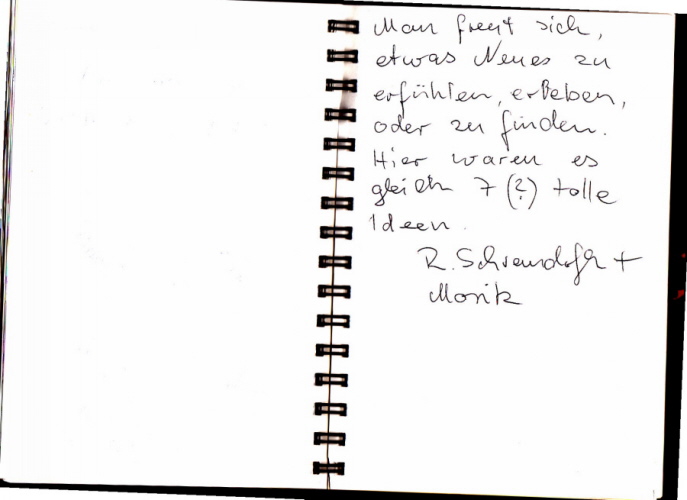 Man freut sich,
etwas Neues zu
erfühlen, erleben,
oder zu finden.
Hier waren es
gleich 7 (?) tolle
Ideen.
R. +
Moritz